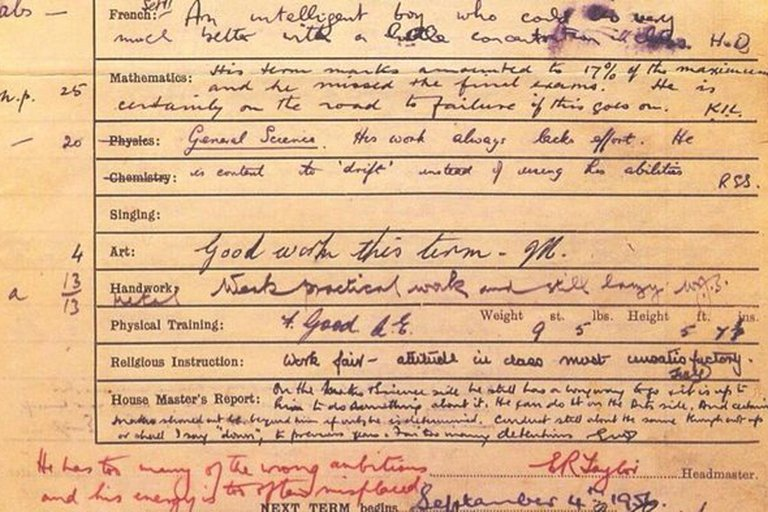 French: An intelligent boy who could be very
much better with a little concentration in class. H.O.
Mathematics: His term marks amounted to 17% of the maximum
and he missed the final exams. He is
n.p. 25
certainly on the road to failure if this goes on. K.I.L.
— 20 Physics: General Science. His work always lacks effort. He
Chemistry: is content to 'drift' instead of using his abilities
R.S.S.
Singing:
4 Art: Good work this term -
a 13/13 Handwork: Weak practical work and still lazy
metal
Physical Training: Good A.E. Weight 9 st. 5 lbs. Height 5 ft. 7½ ins.
Religious Instruction: Work fair - attitude in class most unsatisfactory.
House Master's Report: On the Maths & Science side he still has a long way to go & it is up to
him to do something about it. He can do it on the Arts side. And certain
Maths should not be beyond him if only he is determined. Conduct still about the same though not up
or shall I say "down", to previous years. Far too many detentions
He has too many of the wrong ambitions E R Taylor Headmaster.
and his energy is too often misplaced
NEXT TERM begins September 4th